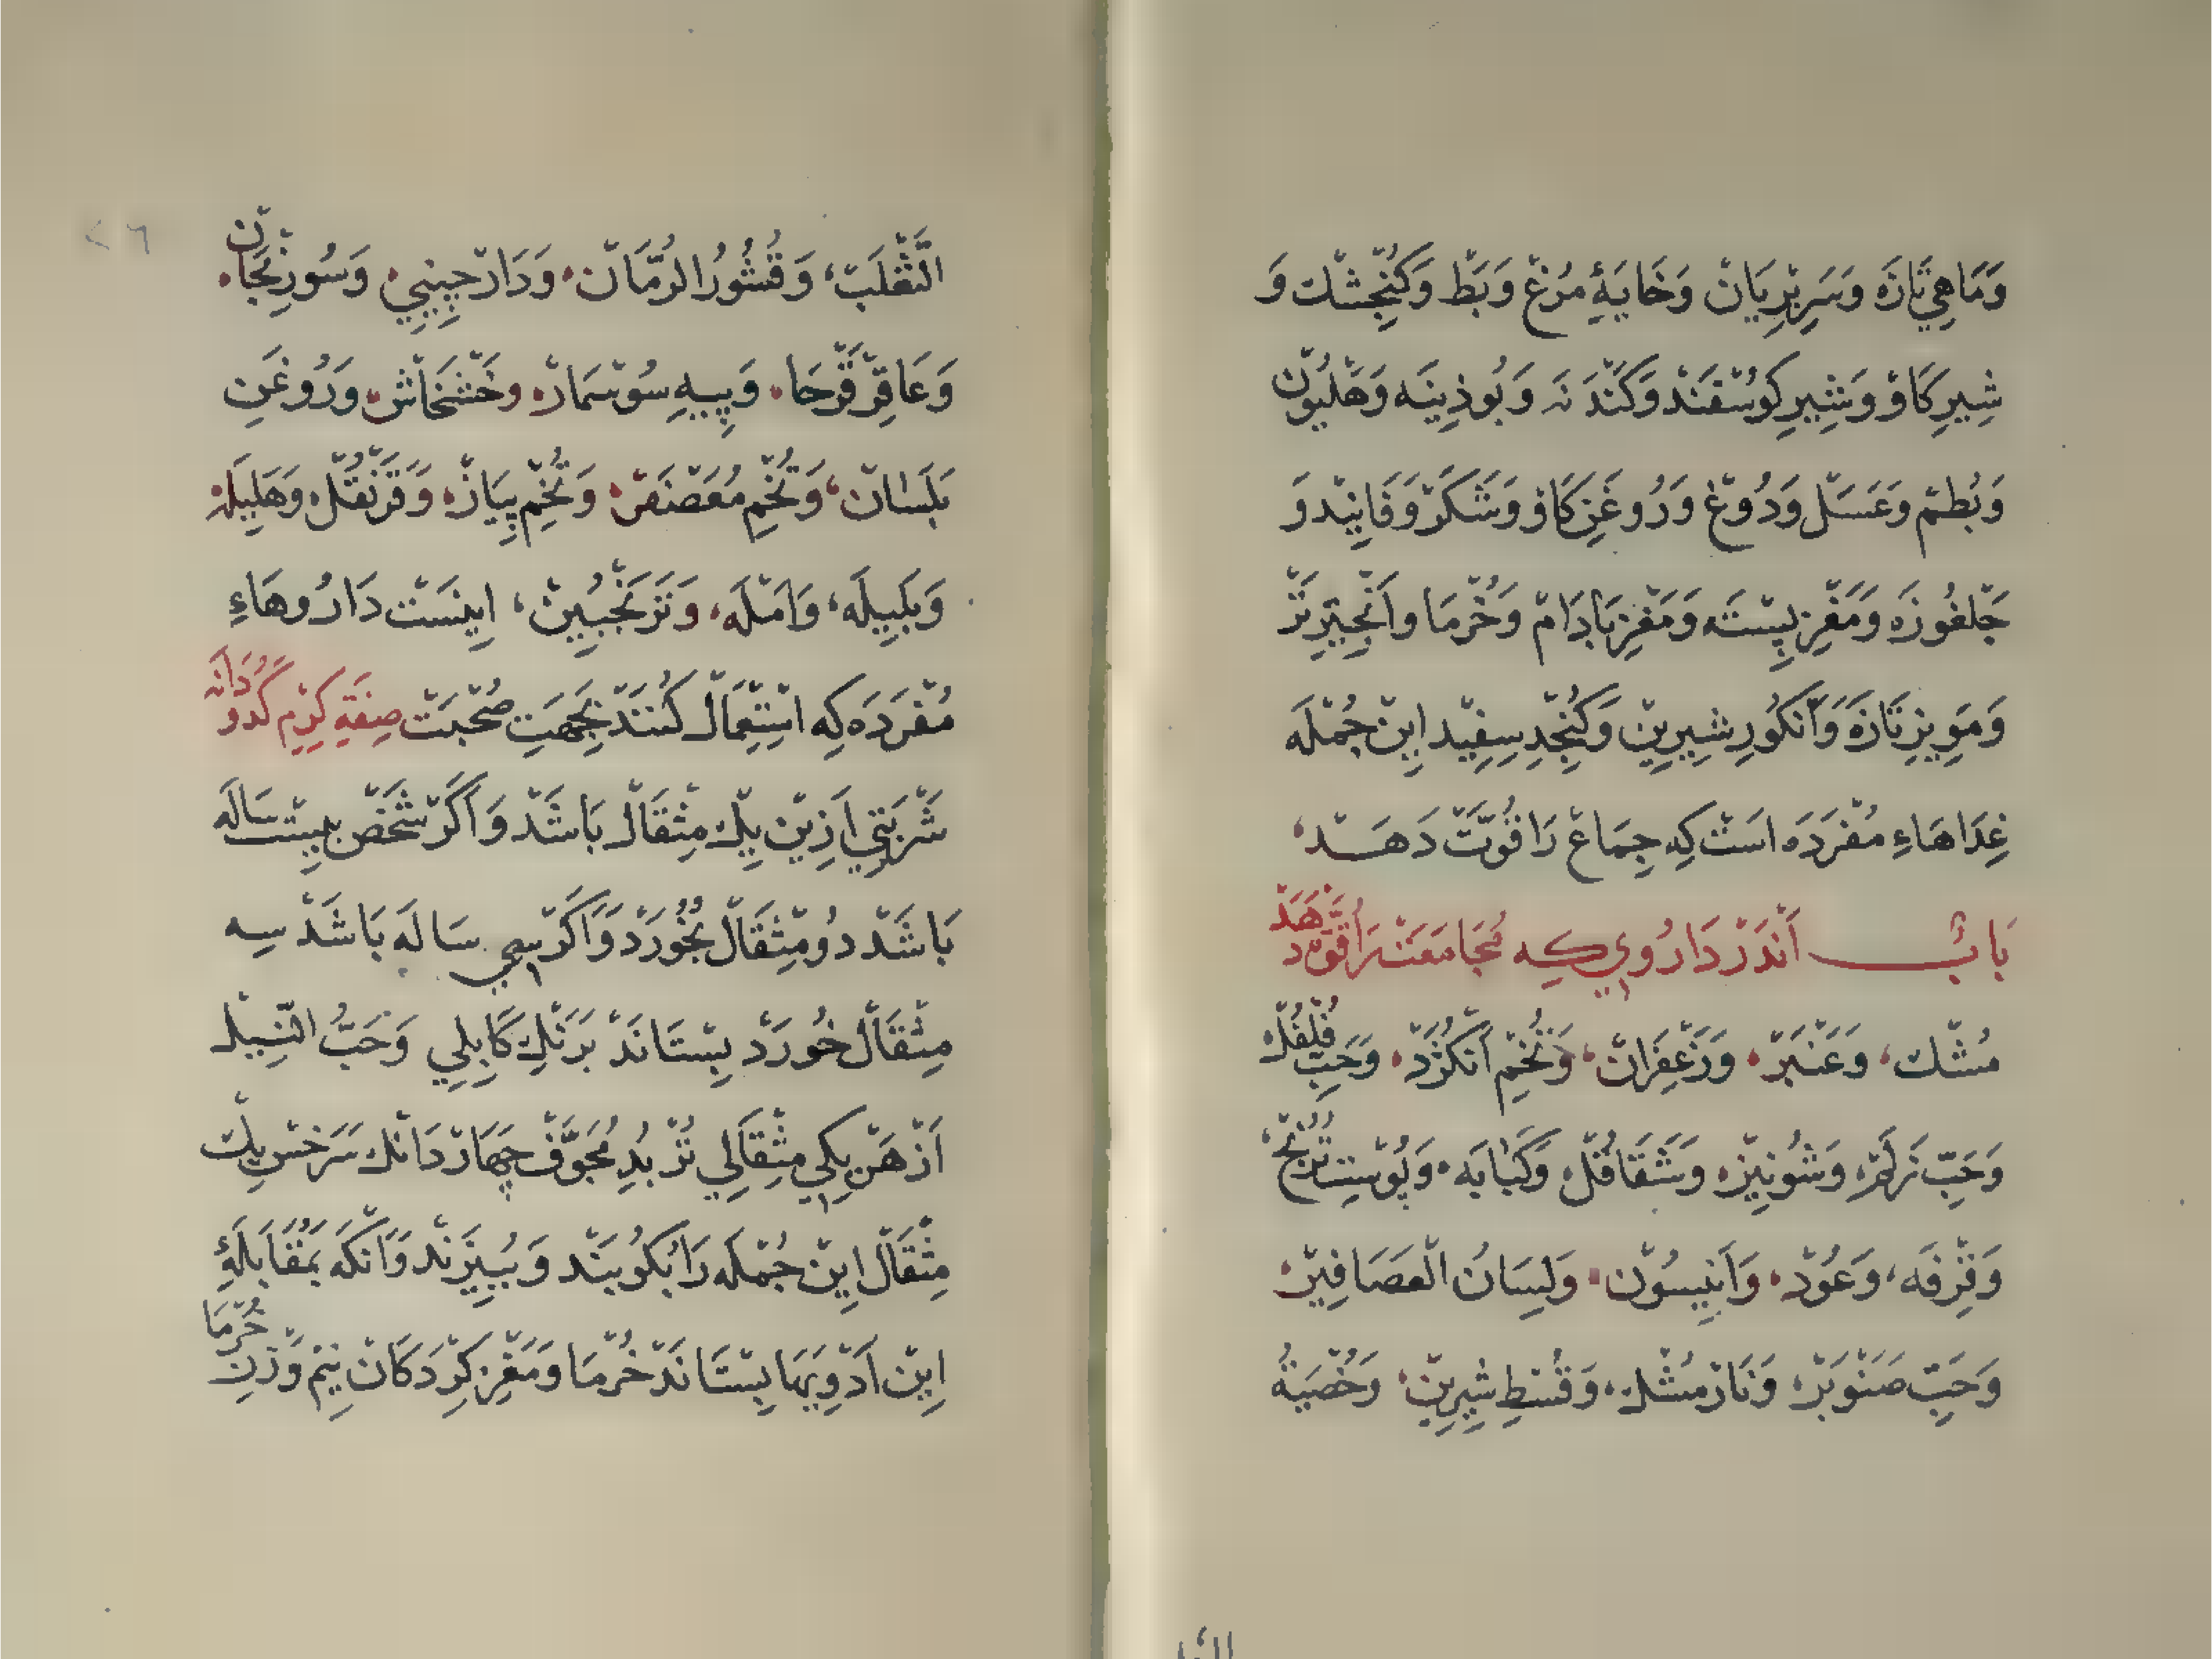 وَمَاهِيِ تَازَه وَسَرِ بِرْيَانْ وَخَايَهٔ مُرْغْ وَبَطْ وَكُنْجِشْك وَ
شِيرِ كَاوْ وَشِيرِ كوُسْفَنْد وَكَنْدَنَه وَبُوذِينَه وَهَلْيُونْ
وَبُطمْ وَعَسَلْ وَدُوغْ وَرُوغَنِ كَاوْ وَشَكَرْ وَفَانِيْد وَ
جَلغُوزَه وَمَغْزِ پِسْتَه وَمَغْزِ بَادَامْ وَخُرْمَا واَنْجِيْرِ تَرْ
وَمَوِيزِ تَازَه وَاَنْكُورِ شِيرِينْ وَكُنْجِدِ سِفِيْد اِينْ جُمْلَه
غِدَاهَاءِ مُفْرَدَه اسَتْ كِه جِمَاعْ رَا قُوَّتْ دَهَدْ
بَابْ اَنْدَرْ دَارُويِي كِه مُجَامَعَتْ رَا قُوَّةْ دَهَدْ
مُشْك، وَعَنْبَرْ، وَزَعِفَرَانْ، وَتُخْمِ اَنْكُزَدْ، وَحَبِّ فُلْفُلْ
وَحَبِّ زَلَمْ، وَشُونِيزْ، وَشَقَاقُلْ، وَكَبَابَه، وَپُوسْتِ تُرُنْجْ،
وَقِرْفَه، وَعُوْدْ، وَاَنِيسُوْن، وَلِسَانُ الْعَصَافِيْرْ،
وَحَبِّ صَنَوْبَرْ، وَنَارْمُشْك، وَقُسْطِ شِيرِينْ، وَخُصْيَةُ
الثَّعْلَبْ، وَقُشُورُ الرُمَّانْ، وَدَارْچِينِيْ، وَسُورِنْجَانْ،
وَعَاقِرْقَرْحَا، وَپِيهِ سُوسْمَارْ، وخَشْخَاشْ، وَرُوغَنِ
بَلَسَانْ، وَتُخْمِ مُعَصْفَرْ، وَتُخْمِ پِيَازْ، وَقَرَنْفُلْ، وَهَلِيلَه،
وَبَلِيلَه، وَامْلَه، وَتَرَنْجُبِينْ، اِينَسْت دَارُوهَاءِ
مُفْرَدَه كِه اسْتِعْمَالْ كُنَنْدْ بَجِهَتِ صُحْبَتْ صِفَةِ كِرْمِ كَدُودَانَه
شَرْبَتِي اَزِين يِكْ مِثْقَالْ بَاشَدْ وَاَكَرْ شَخْص بِيسْت سَالَه
بَاشَدْ دُو مِثْقَالْ بُخُورَدْ وَاَكَرْ سِي سَالَه بَاشَدْ سِه
مِثْقَالْ خُورَدْ بِسْتَانَدْ بَرَنْكِ كَابِلِي وَحَبُّ النِّيلْ
اَزْ هَرْ يِكِي مِثْقَالِي تُرْبُدِ مُجَوَّفْ چِهَارْ دَانْك سَرَخسْ يِكْ
مِثْقَالْ اِينْ جُمْلَه رَا بُكُوبَنْد وَبُبِيزَنْد وَآنْكَه بَمُقَابَلَهٔ
اِينْ اَدْوِيَهَا بِسْتَانَدْ خُرْمَا وَمَغْزِ كِرْدَكَانْ نِيمْ وَزْنِ خُرْمَا